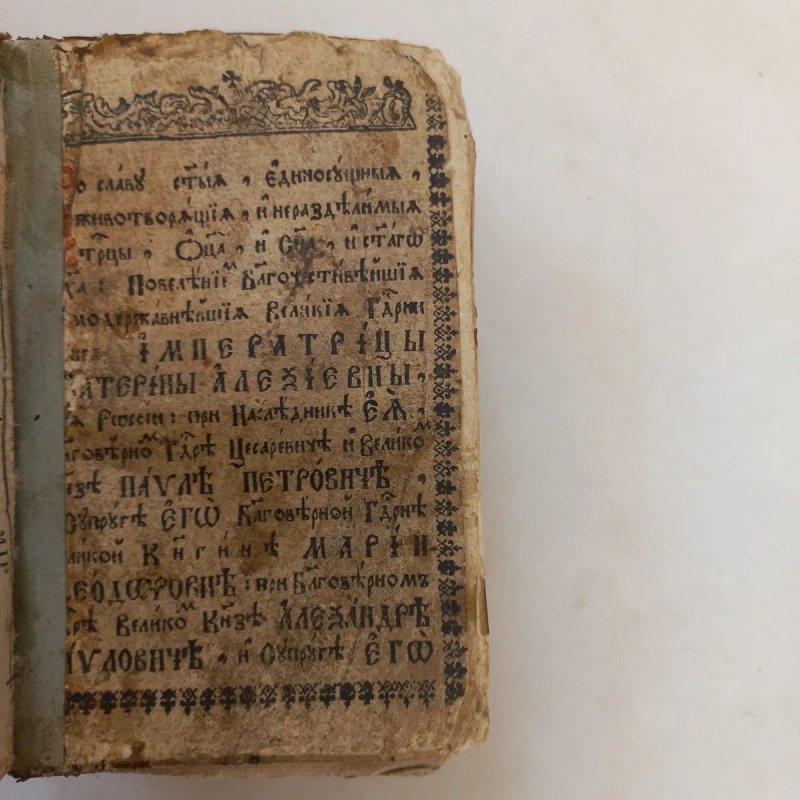 во славу ст҃ыѧ , є҆диносꙋ́щныѧ ,
животворѧ́щїѧ , и҆ нераздѣли́мыѧ
трⷪ҇цы , Ѻ҆ц҃а̀ , и҆ Сн҃а , и҆ ст҃а́гѡ
дх҃а : Повелѣ́нїемъ бл҃гочести́вѣйшїѧ
самодержа́внѣйшїѧ Вели́кїѧ Гдⷭ҇рни
І҆МПЕРАТРІ́ЦЫ
ЕКАТЕРІ́НЫ А҆ЛЕѮІ́ЕВНЫ ,
всеѧ̀ Рѡссі́и : при Наслѣ́дникѣ Е҆Ѧ̀ ,
бл҃говѣ́рномъ Гдⷭ҇рѣ Цесаре́вичѣ и҆ Вели́комъ
кнѧ́зѣ ПА́ѴЛѢ ПЕТРО́ВИЧѢ ,
Сꙋпрꙋ́гѣ Е҆ГѠ̀ Бл҃говѣ́рной Гдⷭ҇рнѣ
вели́кой Кн҃ги́нѣ МАРІ́И
ѲЕО́ДѠРОВНѢ : при Бл҃говѣ́рномъ
гдⷭ҇рѣ Вели́комъ Кн҃зѣ А҆ЛЕѮА́НДРѢ
ПА́ѴЛОВИЧѢ , и҆ Сꙋпрꙋ́гѣ Е҆ГѠ̀